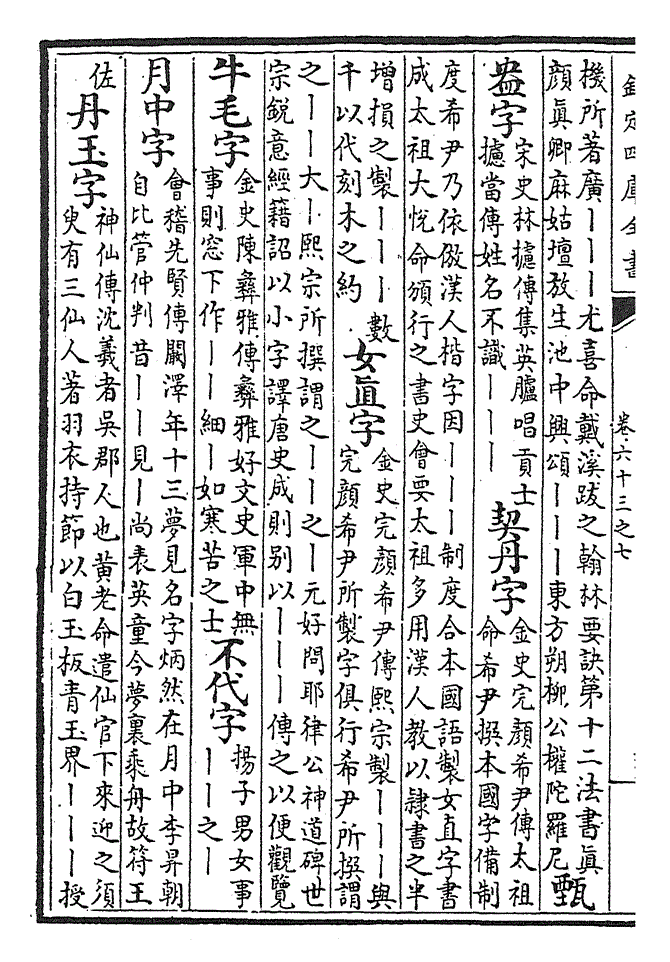 欽定四庫全書
卷六十三之七
機所著廣丨丨丨尤喜命戴溪跋之翰林要訣第十二法書眞
顔眞卿麻姑壇放生池中興頌丨丨丨東方朔柳公權陀羅尼
甄
盎字
宋史林攄傳集英臚唱貢士
攄當傳姓名不識丨丨丨
契丹字
金史完顔希尹傳太祖
命希尹撰本國字備制
度希尹乃依倣漢人楷字因丨丨丨制度合本國語製女直字書
成太祖大悅命頒行之書史會要太祖多用漢人教以隸書之半
增損之製丨丨丨數
千以代刻木之約
女直字
金史完顔希尹傳熙宗製丨丨丨與
完顔希尹所製字俱行希尹所撰謂
之丨丨大丨熙宗所撰謂之丨丨之丨元好問耶律公神道碑世
宗銳意經籍詔以小字譯唐史成則别以丨丨丨傳之以便觀覽
牛毛字
金史陳彝雅傳彝雅好文史軍中無
事則窓下作丨丨細丨如寒苦之士
不代字
揚子男女事
丨丨之丨
月中字
會稽先賢傳闞澤年十三夢見名字炳然在月中李昇朝
自比管仲判昔丨丨見丨尚表英童今夢裏乘舟故符王
佐
丹玉字
神仙傳沈羲者吳郡人也黄老命遣仙官下來迎之須
臾有三仙人著羽衣持節以白玉板青玉界丨丨丨授